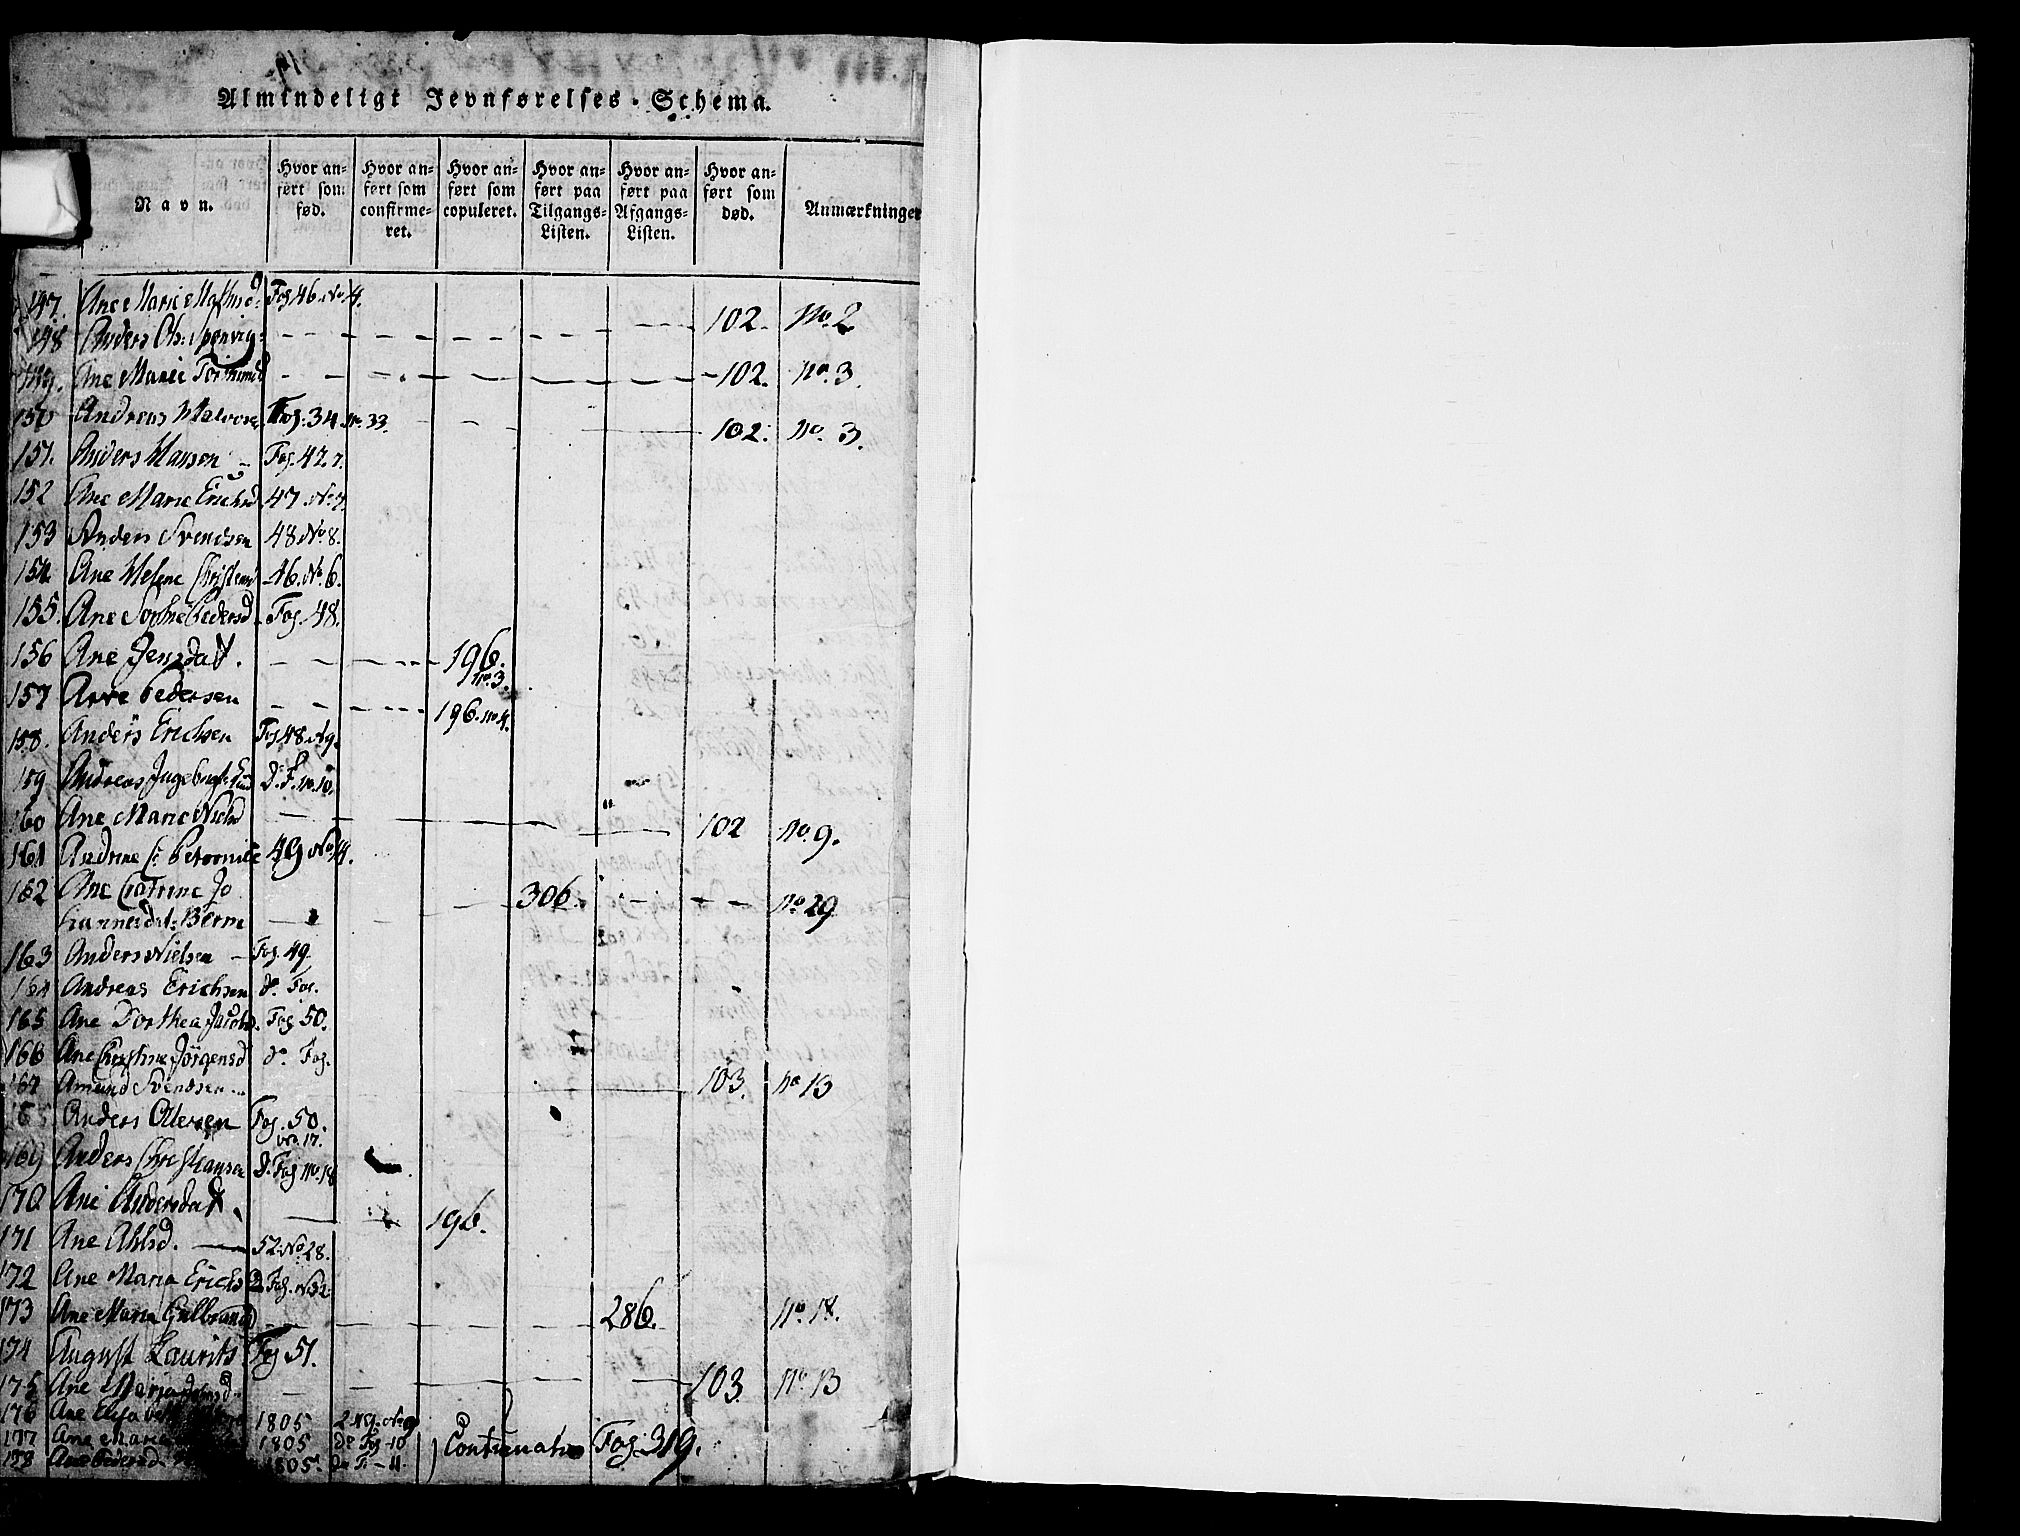 Almindeligt Jevnførelses-Schema.
Navn. Hvor anført som fød. Hvor anført som confirmeret. Hvor anført som copuleret. Hvor anført paa Tilgangs-Listen. Hvor anført paa Afgangs-Listen. Hvor anført som død. Anmærkninger
147. Ane Marie Fog 46. No 4.
148 Anders Ols: 102. No. 2
149. Ane Marie 102. no. 3.
150 Andreas Halvors Fog. 34. no. 33. 102. no. 3.
151. Anders Hansen Fog. 42. 7.
152 Ane Marie Erichsd 47. No. 7.
153 Anders Svendsen 48 No. 8.
154 Ane Helene Christens 46. No. 6.
155. Ane Sophie Pedersd Fog. 48.
156 Ane Jensdatt. 196. no. 3.
157 Arne Pedersen 196. no. 4.
158. Anders Erichsen Fog 48 No 9.
159 Andreas D. F. no. 10.
160 Ane Marie Nielsd 102 no. 9.
161 Andrine 49 No 14.
162 Ane Catrine Jo
hannesdt: 306. no. 29
163 Anders Nielsen Fog. 49.
164 Andreas Erichsen do. Fog.
165 Ane Dorthea Jacobs. Fog 50.
166 Ane Jörgensd do. Fog.
167 Amund Svendsen 103. no 13
168 Anders Olevsen Fog. 50. no. 17.
169 Anders Christiansen D. Fog no. 18
170. Ane Andersdatt. 196.
171 Ane Ahlsd. 52 No. 28.
172 Ane Maria Erichs D. Fog. No 32
173 Ane Maria Gulbrands 286. no. 18.
174 August Laurits Fog 51.
175 Ane 103. no. 13
176 Ane 1805
177 Ane Maria 1805 do Fog - 10
178 Ane Pedersd 1805. do F - 11. Fog. 319.